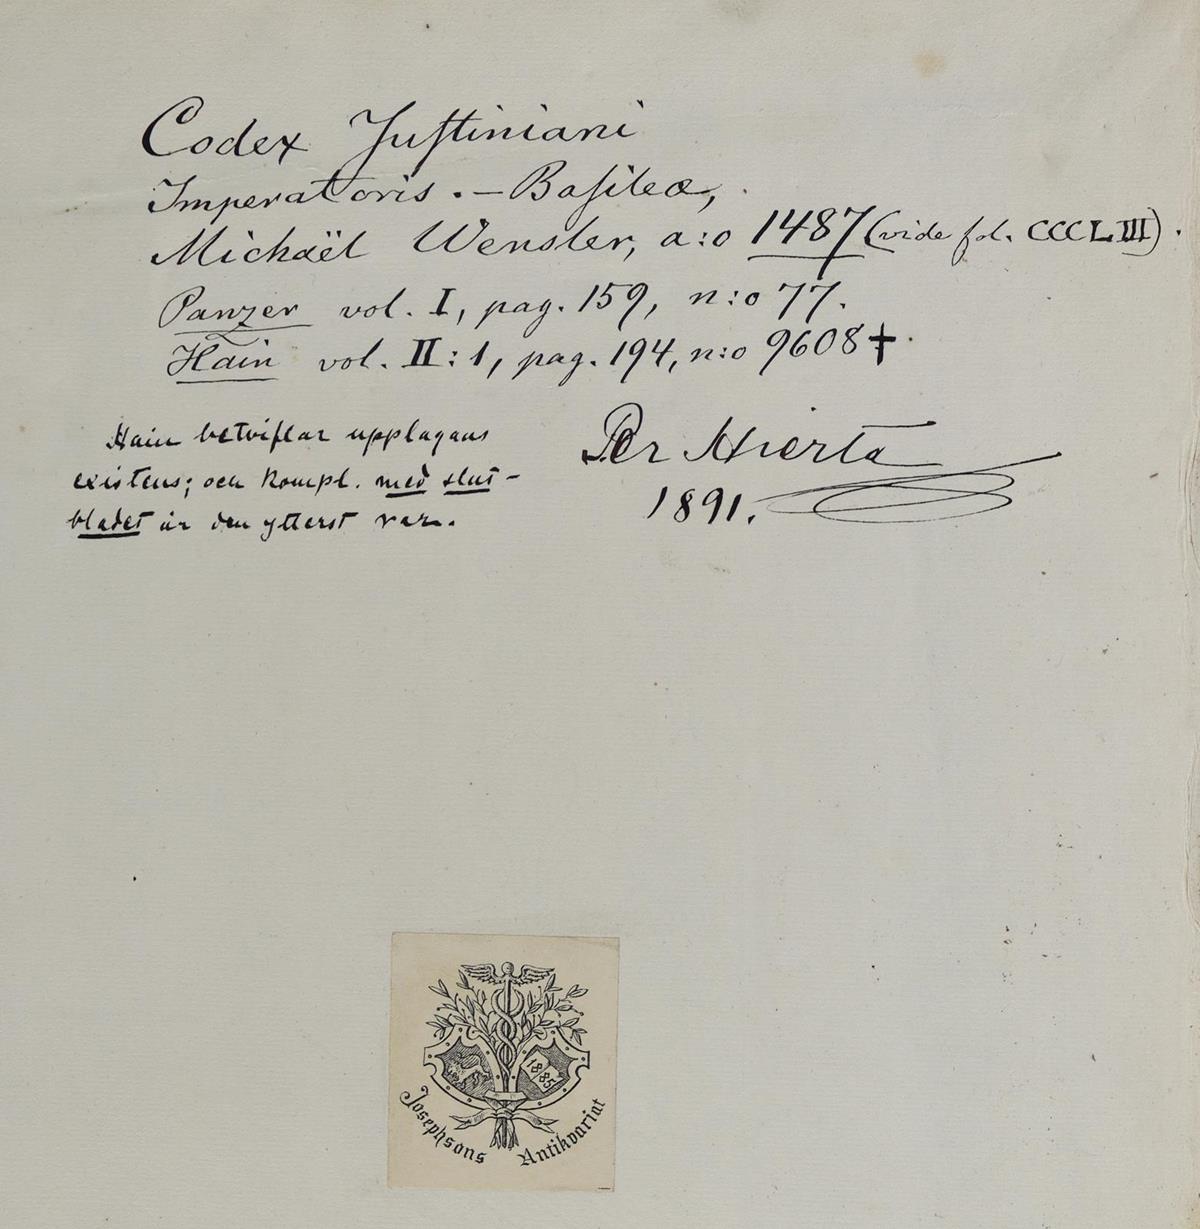 Codex Juſtiniani
Imperatoris. – Baſileæ,
Michaël Wensler, a:o 1487 (vide fol. CCCLIII).
Panzer vol. I, pag. 159, n:o 77.
Hain vol. II:1, pag. 194, n:o 9608†.
Hain betviflar upplagans
existens; och kompl. med slut-
bladet är den ytterst rar.
Per Hierta
1891.
1885
Josephsons Antikvariat